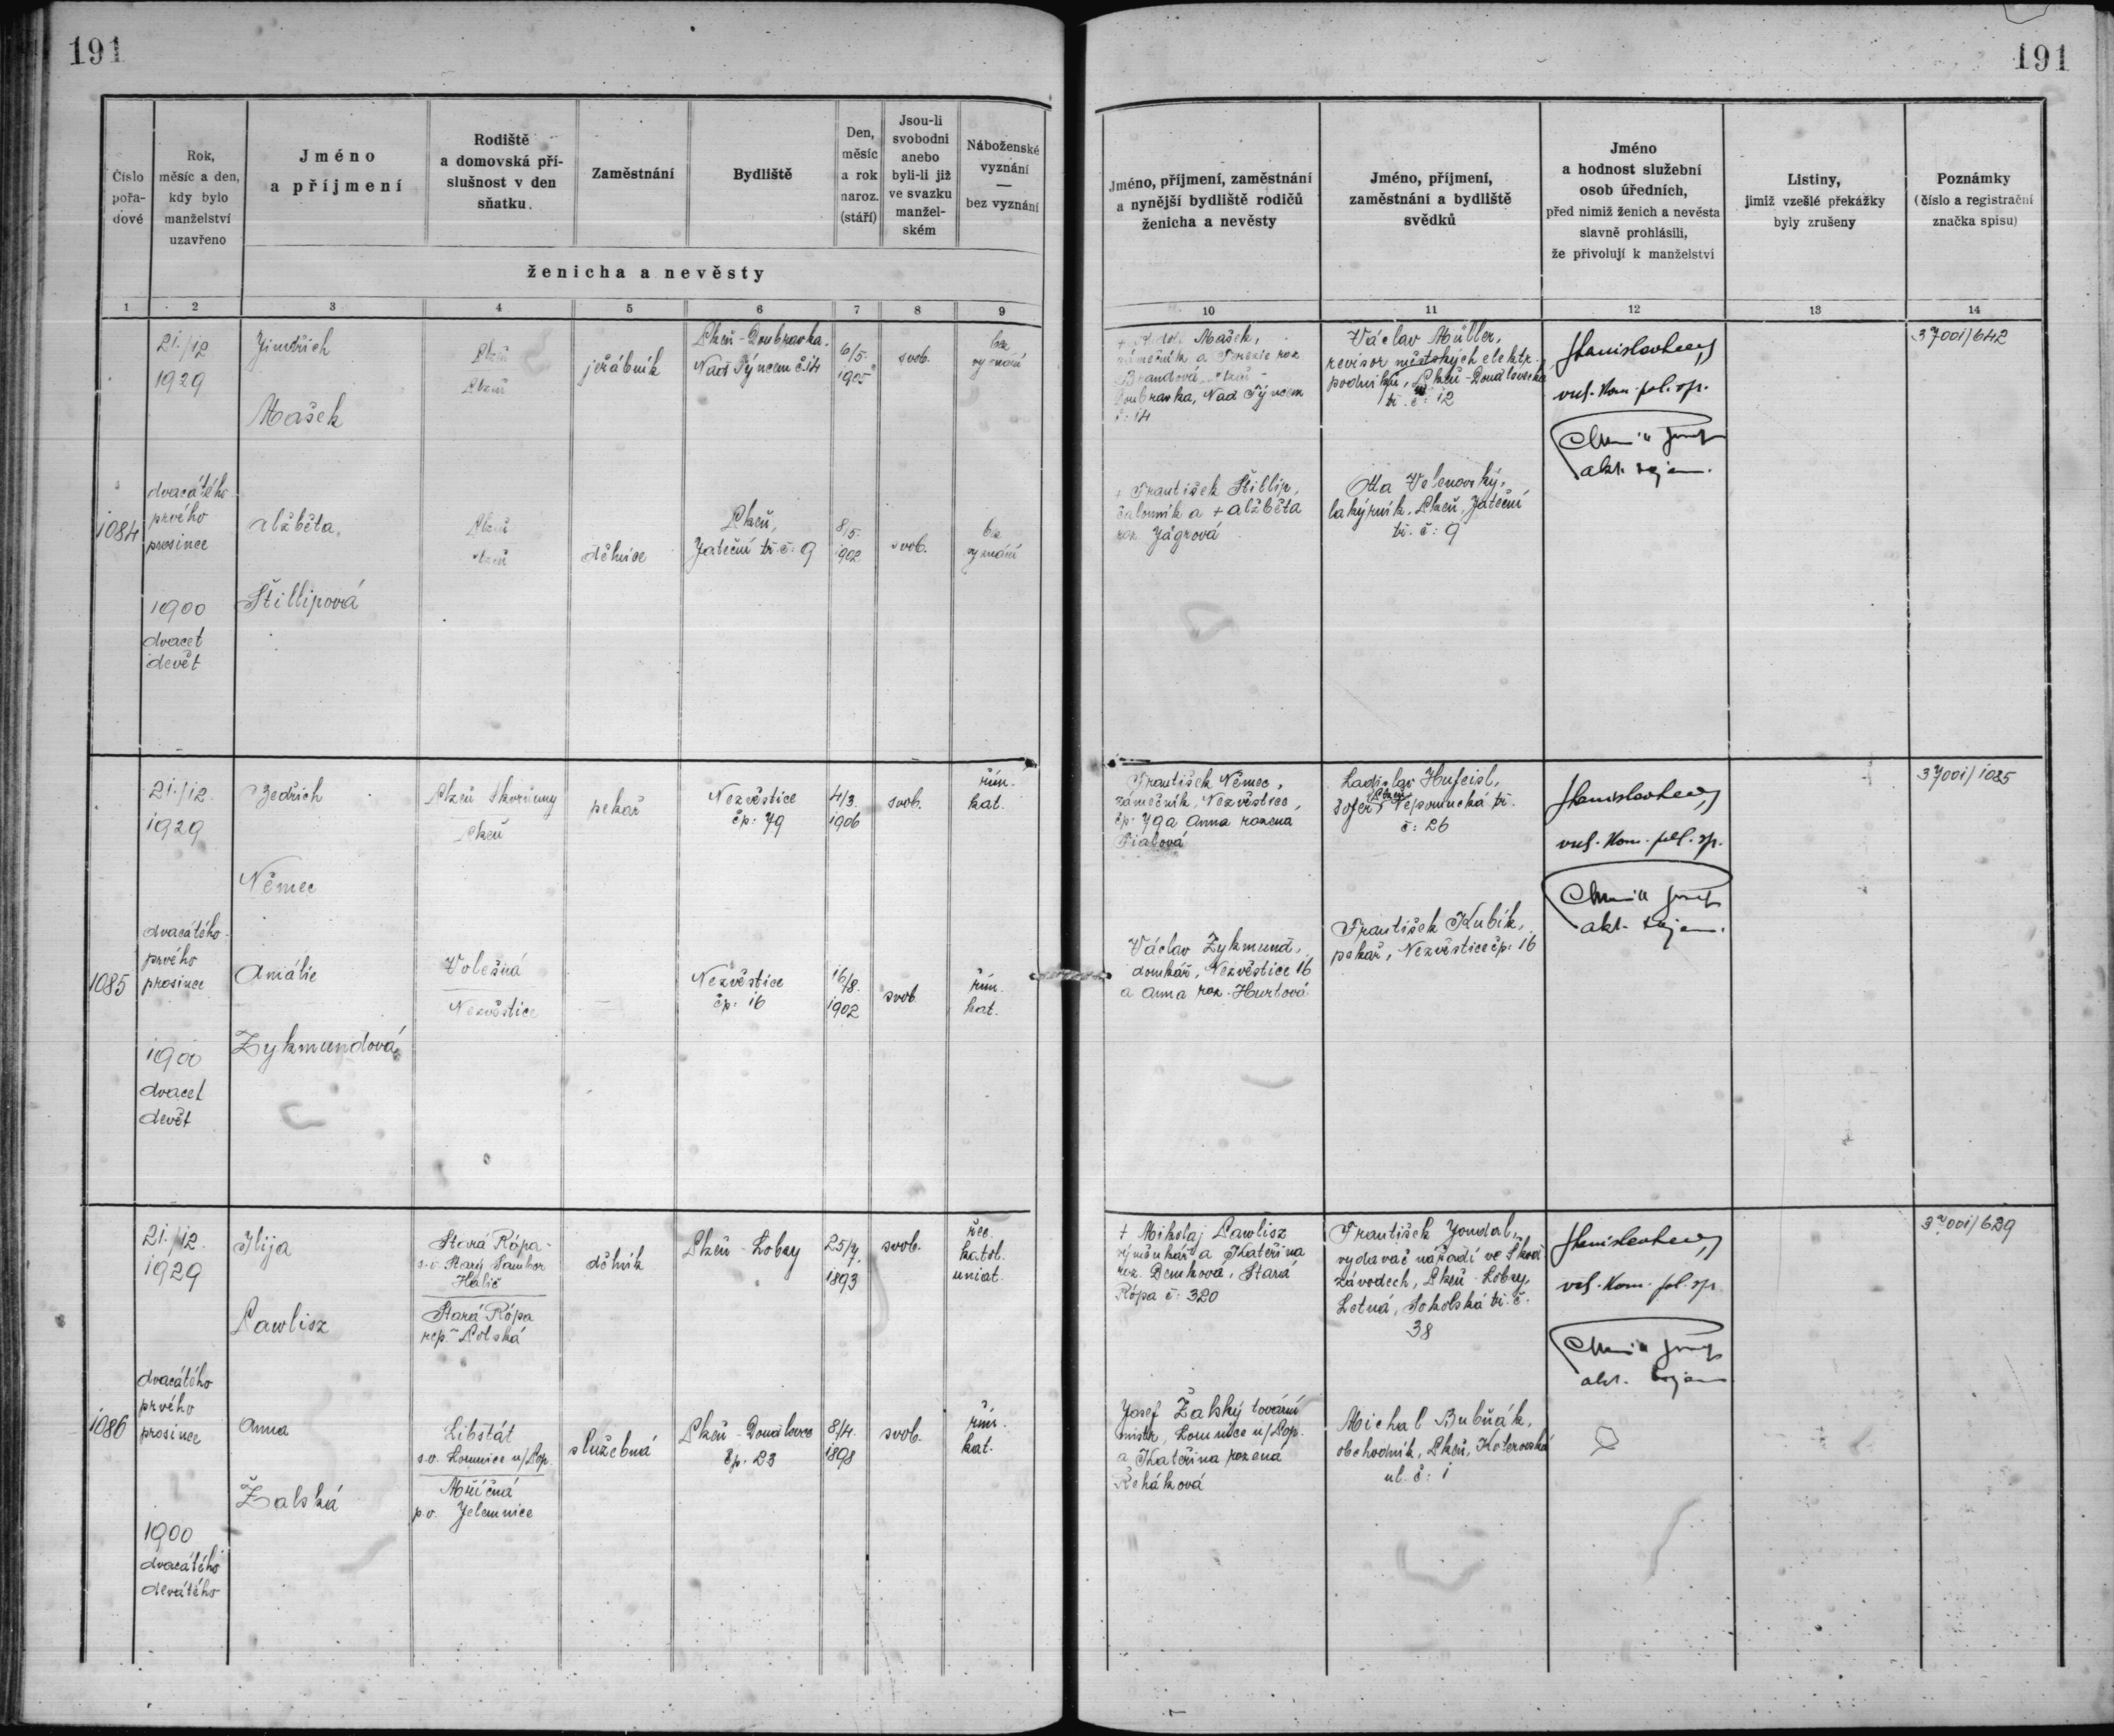 191
191
Číslo
pořa-
dové
Rok,
měsíc a den,
kdy bylo
manželství
uzavřeno
Jméno
a příjmení
Rodiště
a domovská pří-
slušnost v den
sňatku.
Zaměstnání
Bydliště
Den,
měsíc
a rok
naroz.
(stáří)
Jsou-li
svobodni
anebo
byli-li již
ve svazku
manžel-
ském
Náboženské
vyznání
—
bez vyznání
ženicha a nevěsty
Jméno, příjmení, zaměstnání
a nynější bydliště rodičů
ženicha a nevěsty
Jméno, příjmení,
zaměstnání a bydliště
svědků
Jméno
a hodnost služební
osob úředních,
před nimiž ženich a nevěsta
slavně prohlásili,
že přivolují k manželství
Listiny,
jimiž vzešlé překážky
byly zrušeny
Poznámky
(číslo a registrační
značka spisu)
1 2 3 4 5 6 7 8 9 10 11 12 13 14
1084
21./12
1929
dvacátého
prvého
prosince
1900
dvacet
devět
Jindřich
Mašek
Plzeň
Plzeň
jeřábník
Plzeň-Doubravka.
Nad Týncem č. 14
6/5.
1905
svob.
bez
vyznání
Mašek,
zámečník a Terezie roz.
Brandová, Plzeň-
Doubravka, Nad Týncem
č: 14
Václav Müller,
revisor městských elektr.
podniků, Plzeň-Doudlevecká
tř. č: 12
vrch. kom. pol. sp.
Alžběta
Štillipová
Plzeň
Plzeň
dělnice
Plzeň,
Jateční tř. č: 9
8/5.
1902
svob.
bez
vyznání
+ František Štillip,
čalouník a + Alžběta
roz. Jágrová
Otta Velenovský,
lakýrník, Plzeň, Jateční
tř. č: 9
1085
21./12.
1929
dvacátého
prvého
prosince
1900
dvacet
devět
Bedřich
Němec
Plzeň Skvrňany
Plzeň
pekař
Nezvěstice
čp: 79
4/3.
1906
svob.
řím.
kat.
František Němec,
zámečník, Nezvěstice,
čp: 79 a Anna rozena
Fialová
Ladislav Hufeisl,
šofer, Plzeň Nepomucká tř.
č: 26
vrch. kom. pol. sp.
37001/1085
Amálie
Zykmundová
Volešná
Nezvěstice
Nezvěstice
čp: 16
16/8.
1902
svob.
řím.
kat.
Václav Zykmund,
domkář, Nezvěstice 16
a Anna roz. Hurtová
František Kubík,
pekař, Nezvěstice čp: 16
1086
21./12.
1929
dvacátého
prvého
prosince
1900
dvacátého
devátého
Ilija
Pawlisz
Stará Rópa
s.o. Starý Sambor
Halič
Stará Rópa
rep. Polská
dělník
Plzeň-Lobzy
25/7.
1893
svob.
řec.
katol.
uniat.
+ Mikolaj Pawlisz
a Kateřina
roz. Demková, Stará
Rópa č: 320
František Joudal,
vydavač nářadí ve Škod.
závodech, Plzeň-Lobzy,
Letná, Sokolská tř. č.
38
37001/629
Anna
Žalská
Libštát
s.o. Lomnice n/Pop.
Mříčná
p.o. Jilemnice
služebná
Plzeň-Doudlevce
čp. 23
8/4.
1898
svob.
řím.
kat.
Josef Žalský tovární
mistr, Lomnice n/Pop.
a Kateřina rozena
Řeháková
Michal Bubňák,
obchodník, Plzeň, Koterovská
ul. č: 1
37001/642